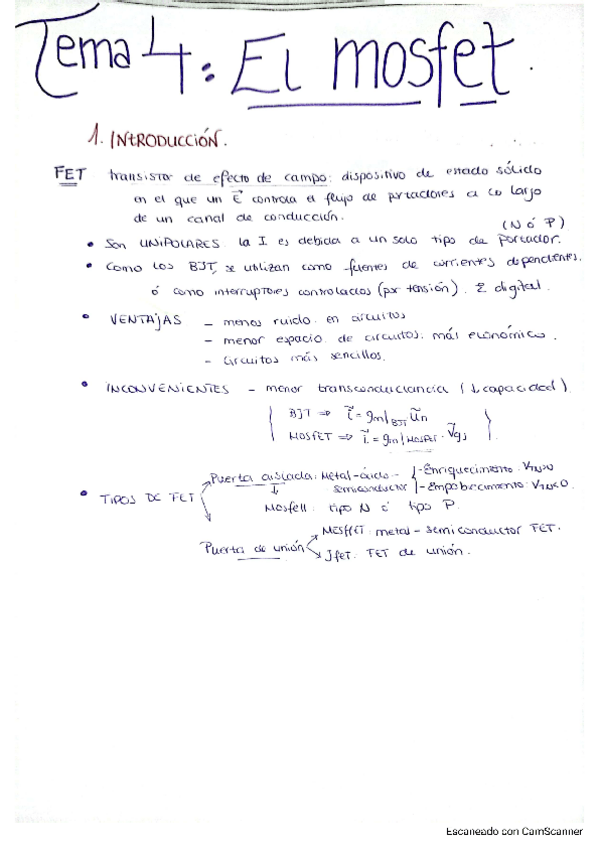 Tema 4: El mosfet.
1. INTRODUCCIÓN.
FET transistor de efecto de campo: dispositivo de estado sólido
en el que un E controla el flujo de portadores a lo largo
de un canal de conducción.
(N ó P)
• Son UNIPOLARES la I es debida a un solo tipo de portador.
• Como los BJT, se utilizan como fuentes de corrientes dependientes.
ó como interruptores controlados (por tensión). E digital.
• VENTAJAS - menos ruido en circuitos
- menor espacio de circuitos: más económico.
- Circuitos más sencillos.
• INCONVENIENTES - menor transconductancia (↓ capacidad).
BJT ⇒ i = gm|BJT un
MOSFET ⇒ i = gm|MOSFET · Vgs
Puerta aislada: Metal-óxido- - Enriquecimiento VTN>0
• TIPOS DE FET ↓ semiconductor - Empobrecimiento: VTN<0
Mosfet: tipo N ó tipo P.
MESFET: metal-semiconductor FET.
Puerta de unión
Jfet: FET de unión.
Escaneado con CamScanner